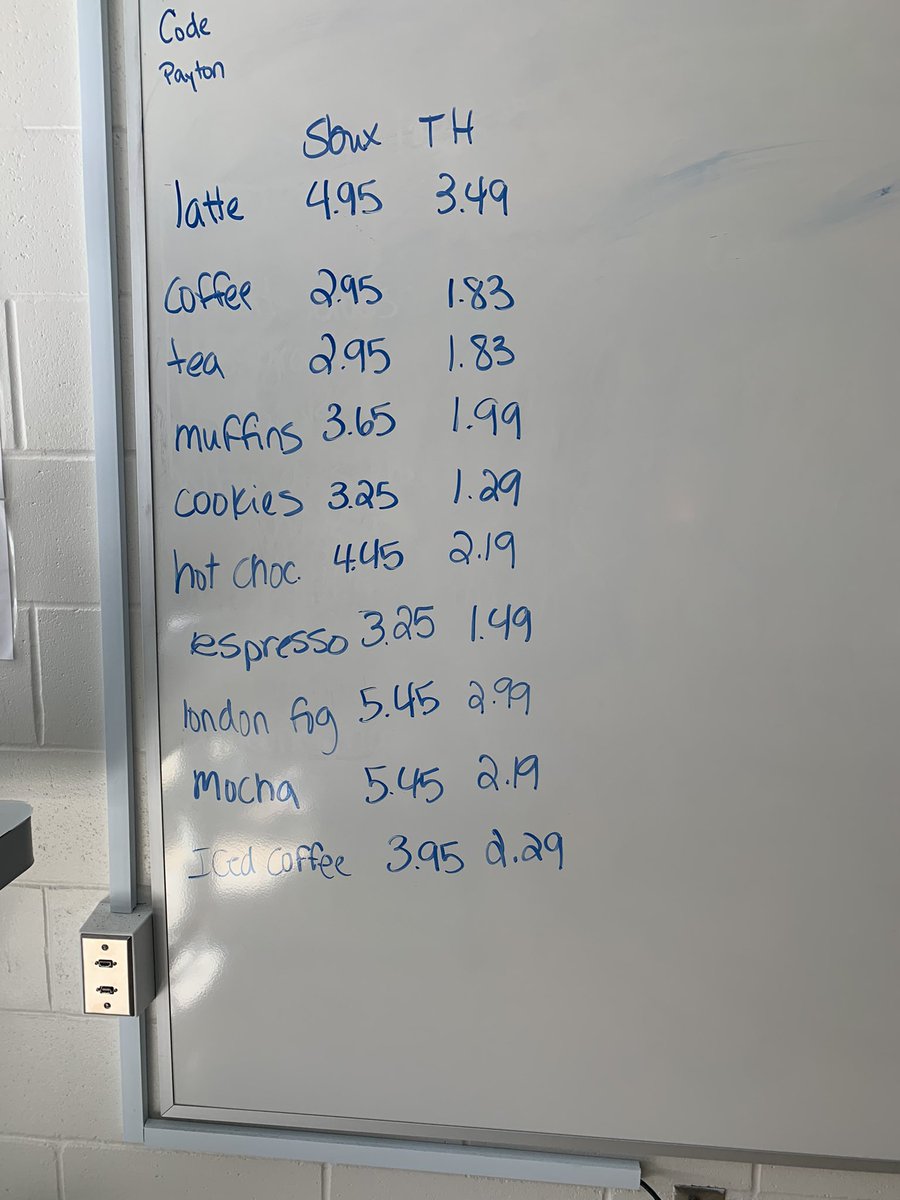 Code
Payton
Sbux TH
latte 4.95 3.49
coffee 2.95 1.83
tea 2.95 1.83
muffins 3.65 1.99
cookies 3.25 1.29
hot choc. 4.45 2.19
espresso 3.25 1.49
london fog 5.45 2.99
Mocha 5.45 2.19
Iced coffee 3.95 2.29